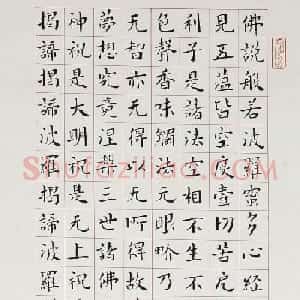 佛說般若波羅蜜多心經
見五蘊皆空度壹切苦厄
利子是諸法空相不生不
色聲香味觸法无眼界乃
无智亦无得以无所得故
夢想究竟涅槃三世諸佛
神祝是大明祝是无上祝
揭諦揭諦波羅揭諦波羅
Shufaziliao.com